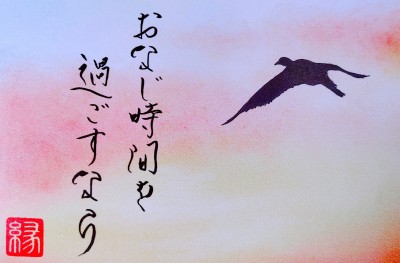 おなじ時間を
過ごすなら
縁